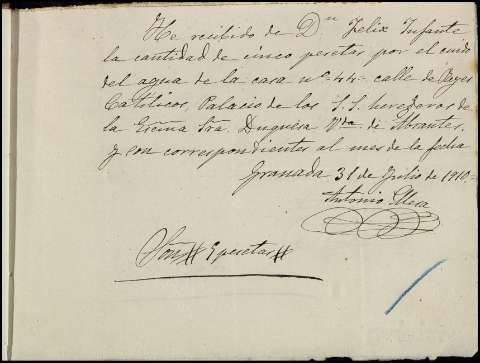 He recibido de Dn Felix Infante
la cantidad de cinco pesetas por el cuido
del agua de la casa nº 44 - calle de Reyes
Católicos, Palacio de los S.S. herederos de
la Excma Sra. Duquesa Vda de Abrantes,
y son correspondientes al mes de la fecha
Granada 31 de Julio de 1910.=
Antonio
Son # 5 pesetas #